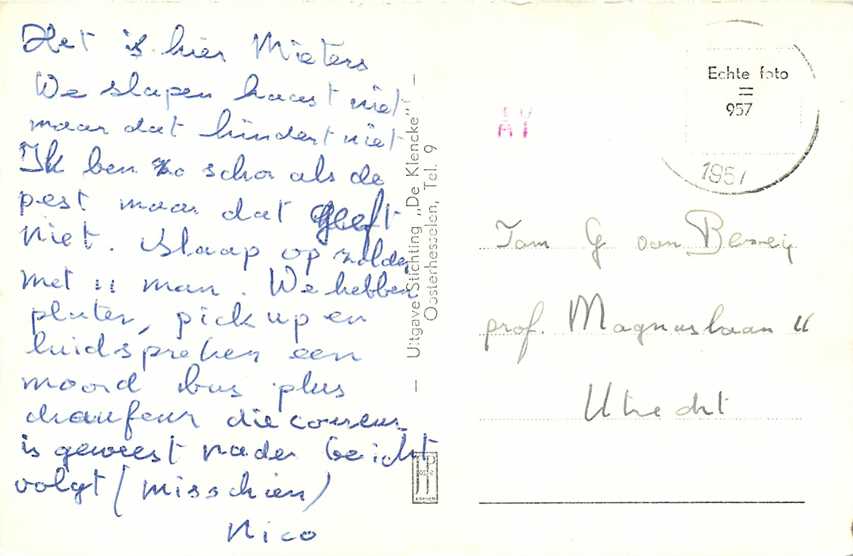 Het is hier Mieters
We slapen haast niet
maar dat hindert niet
Ik ben zo schor als de
pest maar dat geeft
niet. slaap op zolder
met 11 man. We hebben
platen, pick up en
luidspreker een
moord bus plus
chaufeur die coureur
is geweest nader bericht
volgt (misschien)
Nico
— Uitgave: Stichting „De Klencke" —
Oosterhesselen, Tel. 9
HP
AY
Echte foto
=
957
1957
Tom G van
prof. Magnuslaan 4
Utrecht